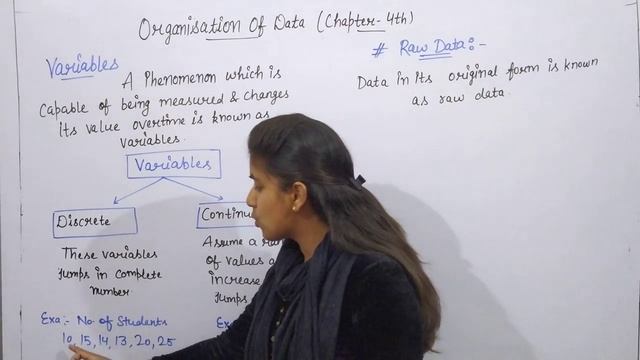 Organisation Of Data (Chapter-4th)
Variables
A Phenomenon which is
capable of being measured & changes
its value overtime is known as
variables.
Variables
Discrete
These variables
Jumps in complete
number
Exa:- No. of Students
10, 15, 14, 13, 20, 25
Assume a
of values
increase
Jumps
# Raw Data:-
Data in Its original form is known
as raw data.